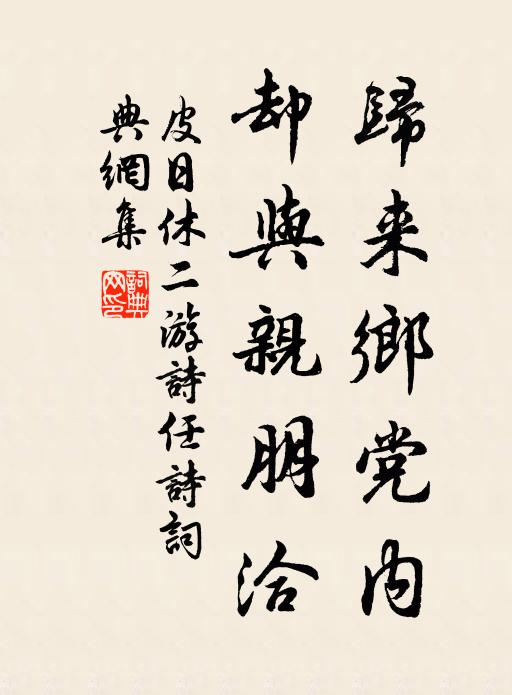 歸来鄉党内
却與親朋洽
皮日休二游詩任詩詞
典網集
詞典網印